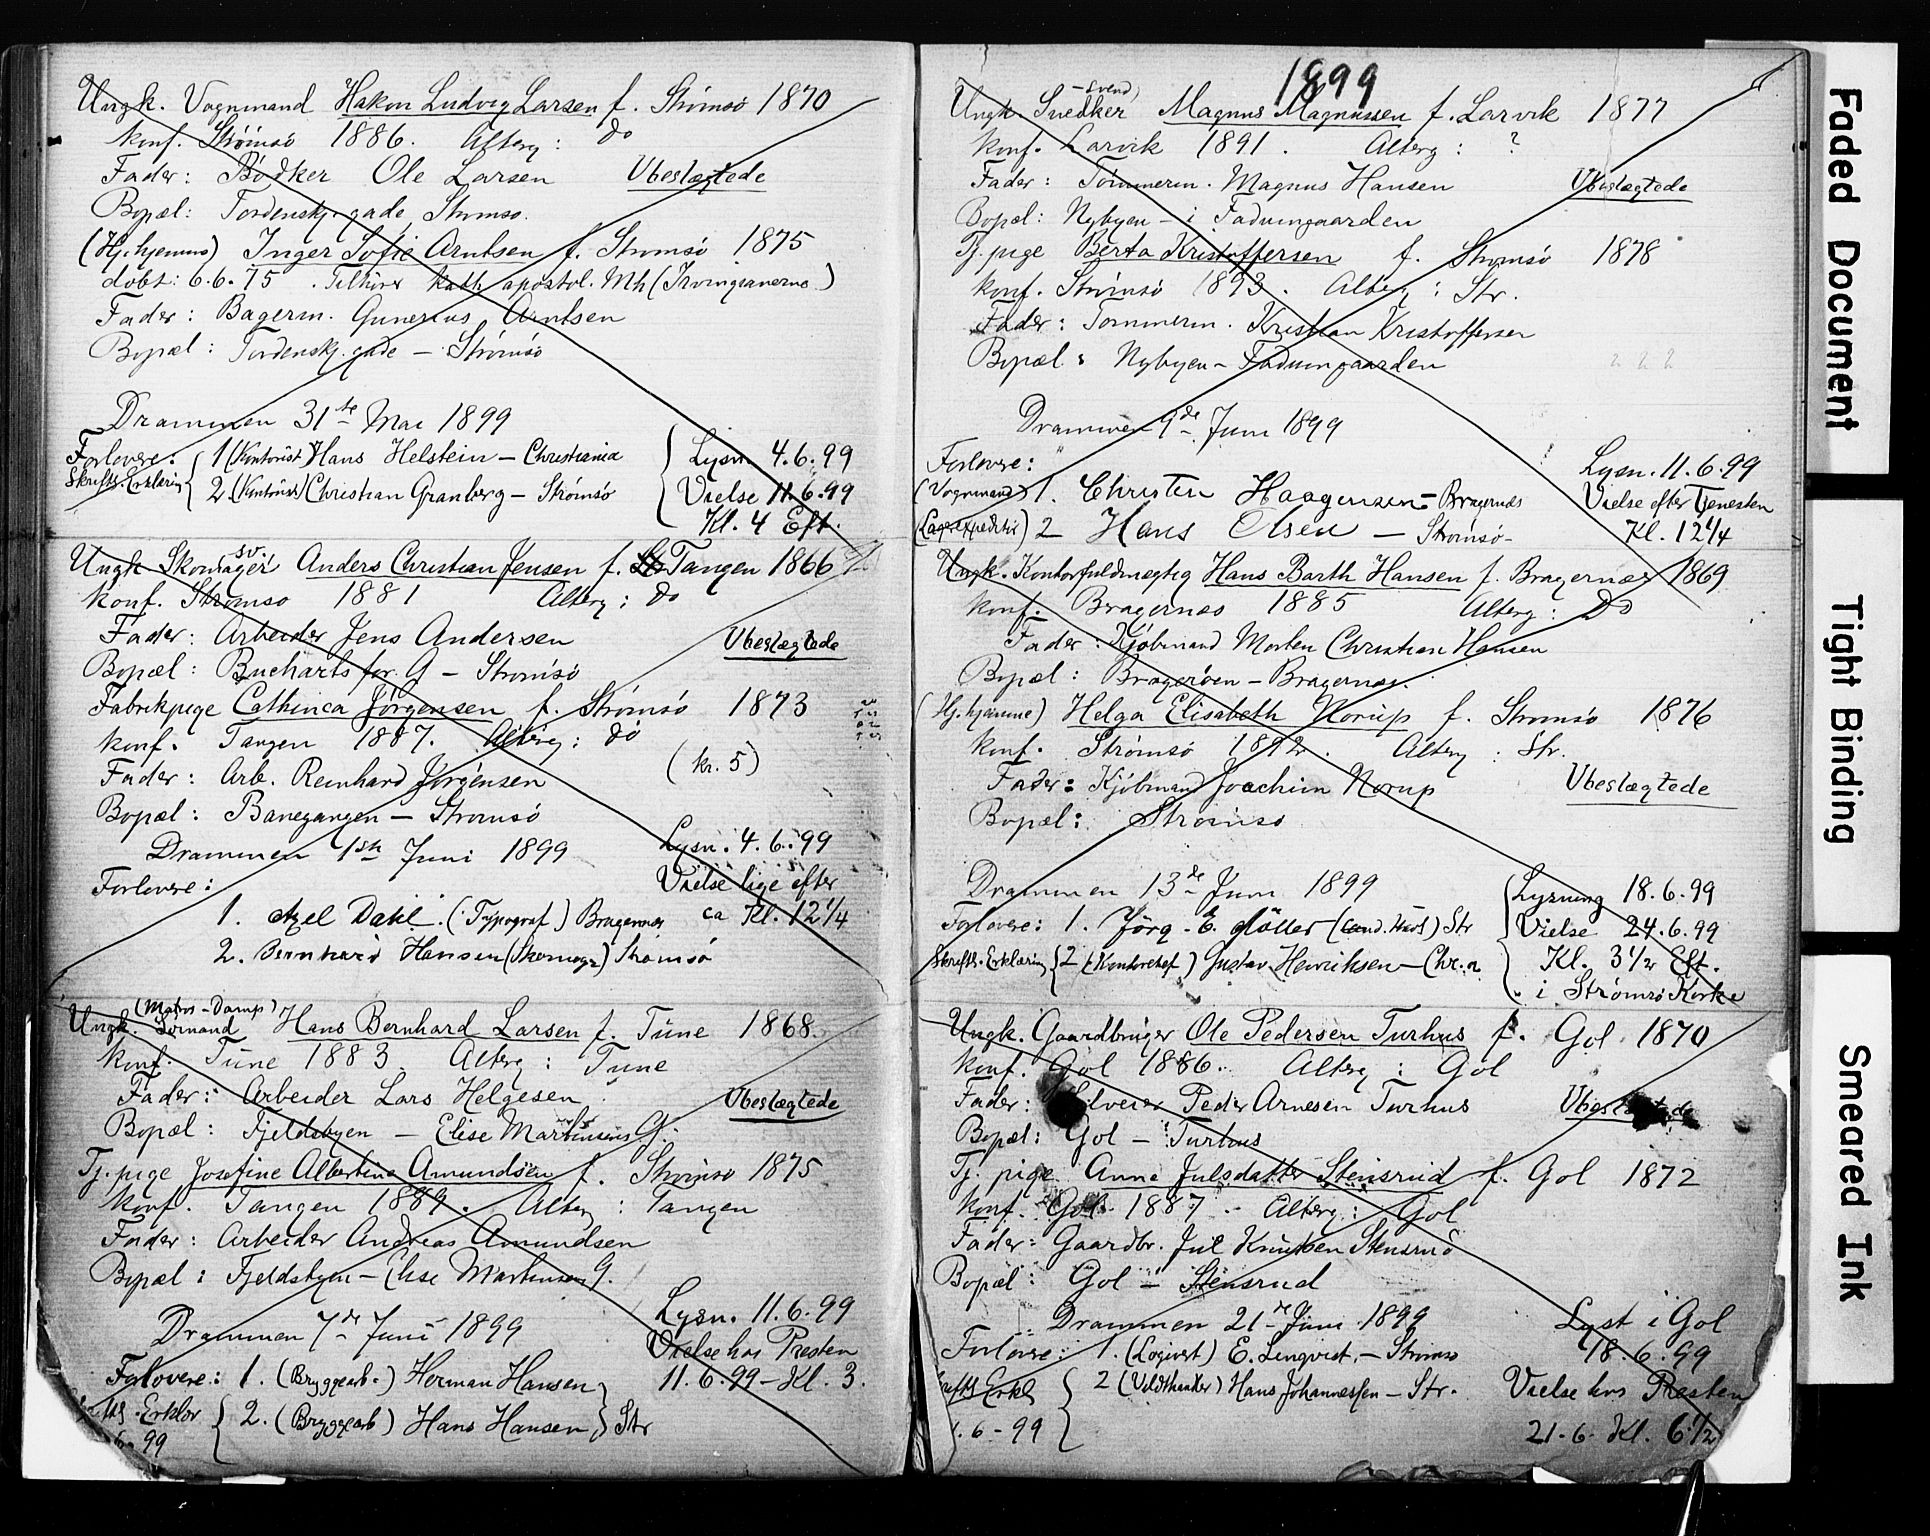 Ungk. Vognmand Hakon Ludvig Larsen f. Strömsö 1870
Konf. Strömsö 1886. Alterg: do
Fader: Bödker Ole Larsen Ubeslægtede
Bopæl: Tordenskj. gade Strömsö.
(Hj. hjemme) Inger Sofie Arntsen f. Strömsö 1875
döbt: 6.6.75. Tilhörer kath. apostol. Mh (Irvingianerne)
Fader: Bagerm. Gunerius Arntsen
Bopæl: Tordenskj. gade – Strömsö
Drammen 31te Mai 1899
Forlovere: 1 (Kontorist) Hans Helstein – Christiania Lysn. 4.6.99
Skriftl. Erklæring 2 (Kontorist) Christian Granberg – Strömsö Vielse 11.6.99
Kl. 4 Eft.
Ungk Skomager sv. Anders Christian Jensen f. Tangen 1866
Konf. Strömsö 1881 Alterg: do
Fader: Arbeider Jens Andersen Ubeslægtede
Bopæl: Bucharts for. G – Strömsö
Fabrikpige Cathinca Jörgensen f. Strömsö 1873
Konf. Tangen 1887. Alterg: do
Fader: Arb. Reinhard Jörgensen (kr. 5)
Bopæl: Banegangen – Strömsö
Drammen 1ste Juni 1899 Lysn. 4.6.99
Forlovere: Vielse lige efter
1. Axel Dahl. (Typograf) Bragernæs ca Kl. 12 1/4
2. Bernhard Hansen (Skomager) Strömsö
(Matros – Damp)
Ungk. Sömand Hans Bernhard Larsen f. Tune 1868.
Konf. Tune 1883 Alterg: Tune
Fader: Arbeider Lars Helgesen Ubeslægtede
Bopæl: Fjeldsbyen – Elise Martinsens G.
Tj. pige Josefine Albertine Amundsen f. Strömsö 1875
Konf. Tangen 1889. Alterg: Tangen
Fader: Arbeider Andreas Amundsen
Bopæl: Fjeldsbyen – Elise Martinsens G.
Drammen 7de Juni 1899 Lysn. 11.6.99
Vielse hos Presten
Forlovere: 1. (Bryggearb.) Herman Hansen 11.6.99 – Kl. 3.
Erklær 2. (Bryggearb) Hans Hansen Str
99
1899
Ungk. Snedker-svend Magnus Magnussen f. Larvik 1877
Konf. Larvik 1891. Alterg: ?
Fader: Tömmerm. Magnus Hansen Ubeslægtede
Bopæl: Nybyen – i Fadumgaarden
Tj. pige Berta Kristoffersen f. Strömsö 1878
Konf. Strömsö 1893. Alterg: Str.
Fader: Tömmerm. Kristian Kristoffersen
Bopæl: Nybyen – Fadumgaarden
Drammen 9de Juni 1899
Forlovere: Lysn. 11.6.99
(Vognmand) 1. Christen Haagensen – Bragernæs Vielse efter Tjenesten
(Lagerexpeditör) 2 Hans Olsen – Strömsö – Kl. 12 1/4
Ungk. Kontorfuldmægtig Hans Barth Hansen f. Bragernæs 1869
Konf. Bragernæs 1885 Alterg: Do
Fader: Kjöbmand Morten Christian Hansen
Bopæl: Bragerøen – Bragernæs.
(Hj. hjemme) Helga Elisabeth Norup f. Strömsö 1876
Konf. Strömsö 1892. Alterg: Str.
Fader: Kjöbmand Joachim Norup Ubeslægtede
Bopæl: Strömsö
Drammen 13de Juni 1899 Lysning 18.6.99
Forlovere: 1. Jörg. E. Möller (Cand. ) Str Vielse 24.6.99
Skriftl. Erklæring 2 (Kontorchef) Gustav Henriksen – Chr.a Kl. 3 1/2 Eft.
i Strömsö Kirke
Ungk. Gaardbruger Ole Pedersen Turhus f. Gol 1870
Konf. Gol 1886. Alterg: Gol
Fader: Peder Arnesen Turhus Ubeslægtede
Bopæl: Gol – Turhus
Tj. pige Anne Julsdatter Stensrud f. Gol 1872
Konf. Gol 1887. Alterg: Gol
Fader: Gaardbr. Jul Knutsen Stensrud
Bopæl: Gol – Stensrud
Drammen 21de Juni 1899 Lyst i Gol
Forlovere: 1. (Logivert) E. Lingvist – Strömsö 18.6.99
Erkl 2 (Vildthandler) Hans Johannessen – Str. Vielse hos Presten
.6–99 21.6. Kl. 6 1/2
Faded Document
Tight Binding
Smeared Ink